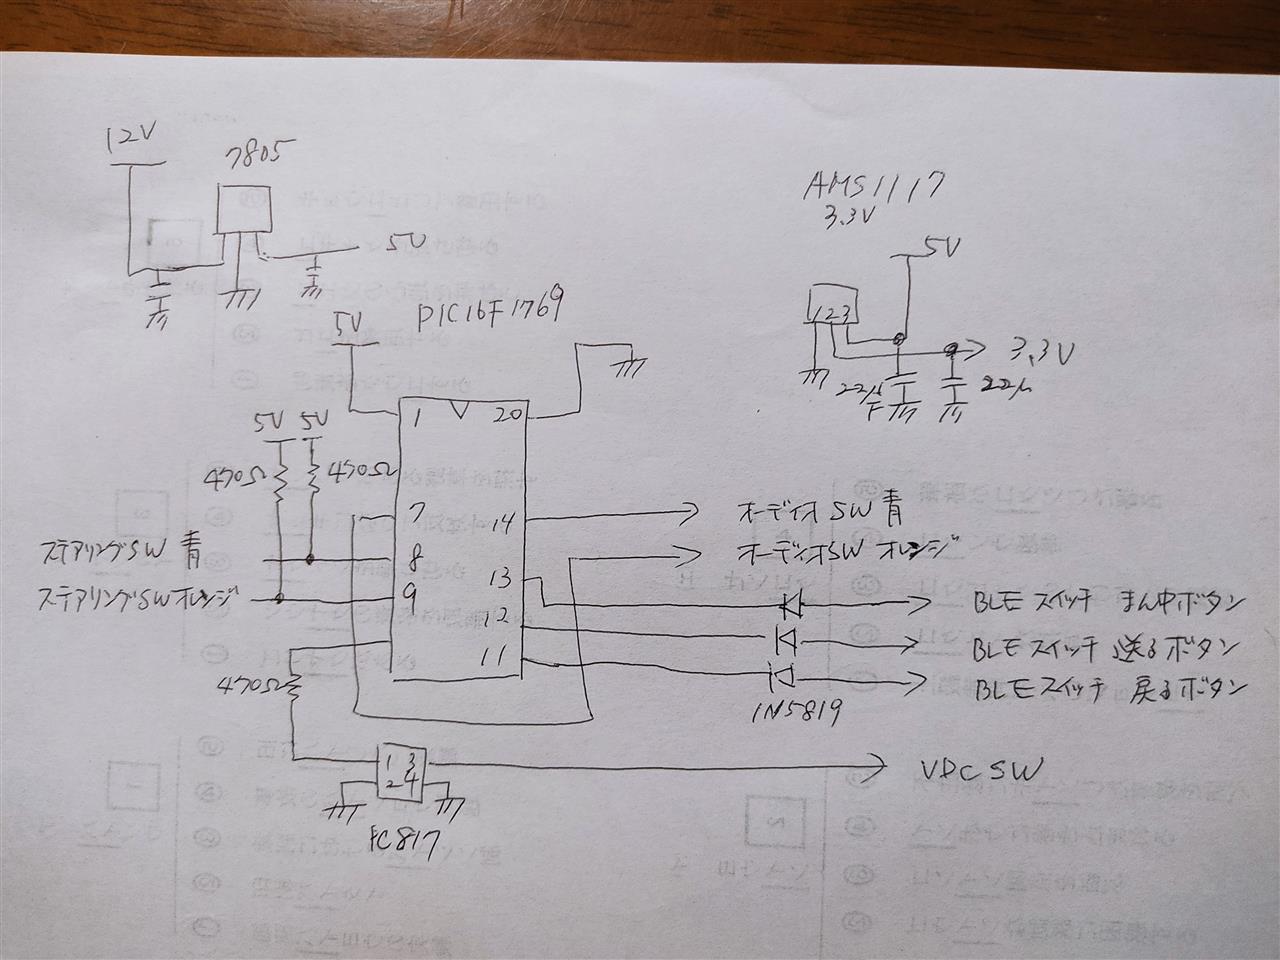 12V
7805
5V
AMS1117
3.3V
5V
1 2 3
3.3V
22μF
22μ
PIC16F1769
5V
1
20
5V 5V
470Ω
470Ω
7
14
オーディオSW 青
ステアリングSW 青
8
オーディオSW オレンジ
ステアリングSWオレンジ
9
13
BLEスイッチ まん中ボタン
12
BLEスイッチ 送るボタン
11
BLEスイッチ 戻るボタン
470Ω
1N5819
1 3
2 4
VDC SW
PC817